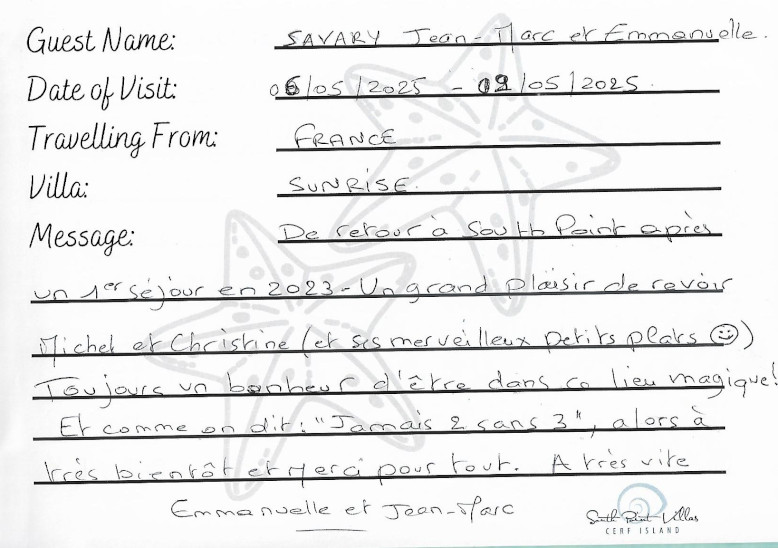 Guest Name: SAVARY Jean-Marc et Emmanuelle.
Date of Visit: 06/05/2025 - 09/05/2025.
Travelling From: FRANCE
Villa: SUNRISE.
Message: De retour à South Point après
un 1er séjour en 2023 - Un grand plaisir de revoir
Michel et Christine (et ses merveilleux petits plats ☺)
Toujours un bonheur d'être dans ce lieu magique!
Et comme on dit : "Jamais 2 sans 3", alors à
très bientôt et Merci pour tout. A très vite
Emmanuelle et Jean-Marc
South Point Villas
CERF ISLAND